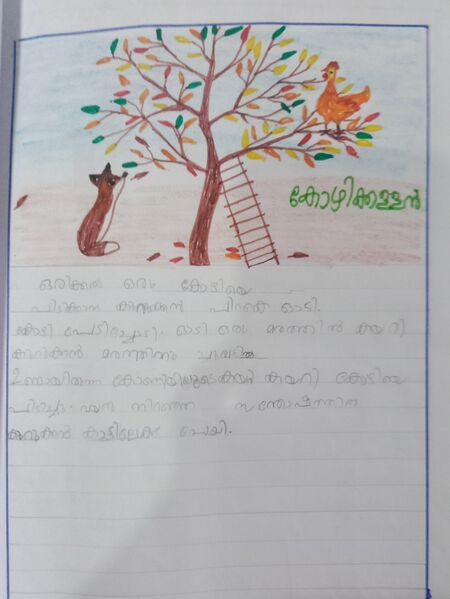 കോഴിക്കള്ളൻ
ഒരിക്കൽ ഒരു കോഴിയെ
പിടിക്കാൻ കുറുക്കൻ പിറകെ ഓടി.
കോഴി പേടിച്ചോടി. ഓടി ഒരു മരത്തിൽ കയറി
കുറുക്കൻ മരത്തിനു ചുവട്ടിൽ
ഉണ്ടായിരുന്ന കോണിയിലൂടെ കയറി കോഴിയെ
പിടിച്ചു. വയറു നിറഞ്ഞ സന്തോഷത്തിൽ
കുറുക്കൻ കാട്ടിലേക്ക് പോയി.